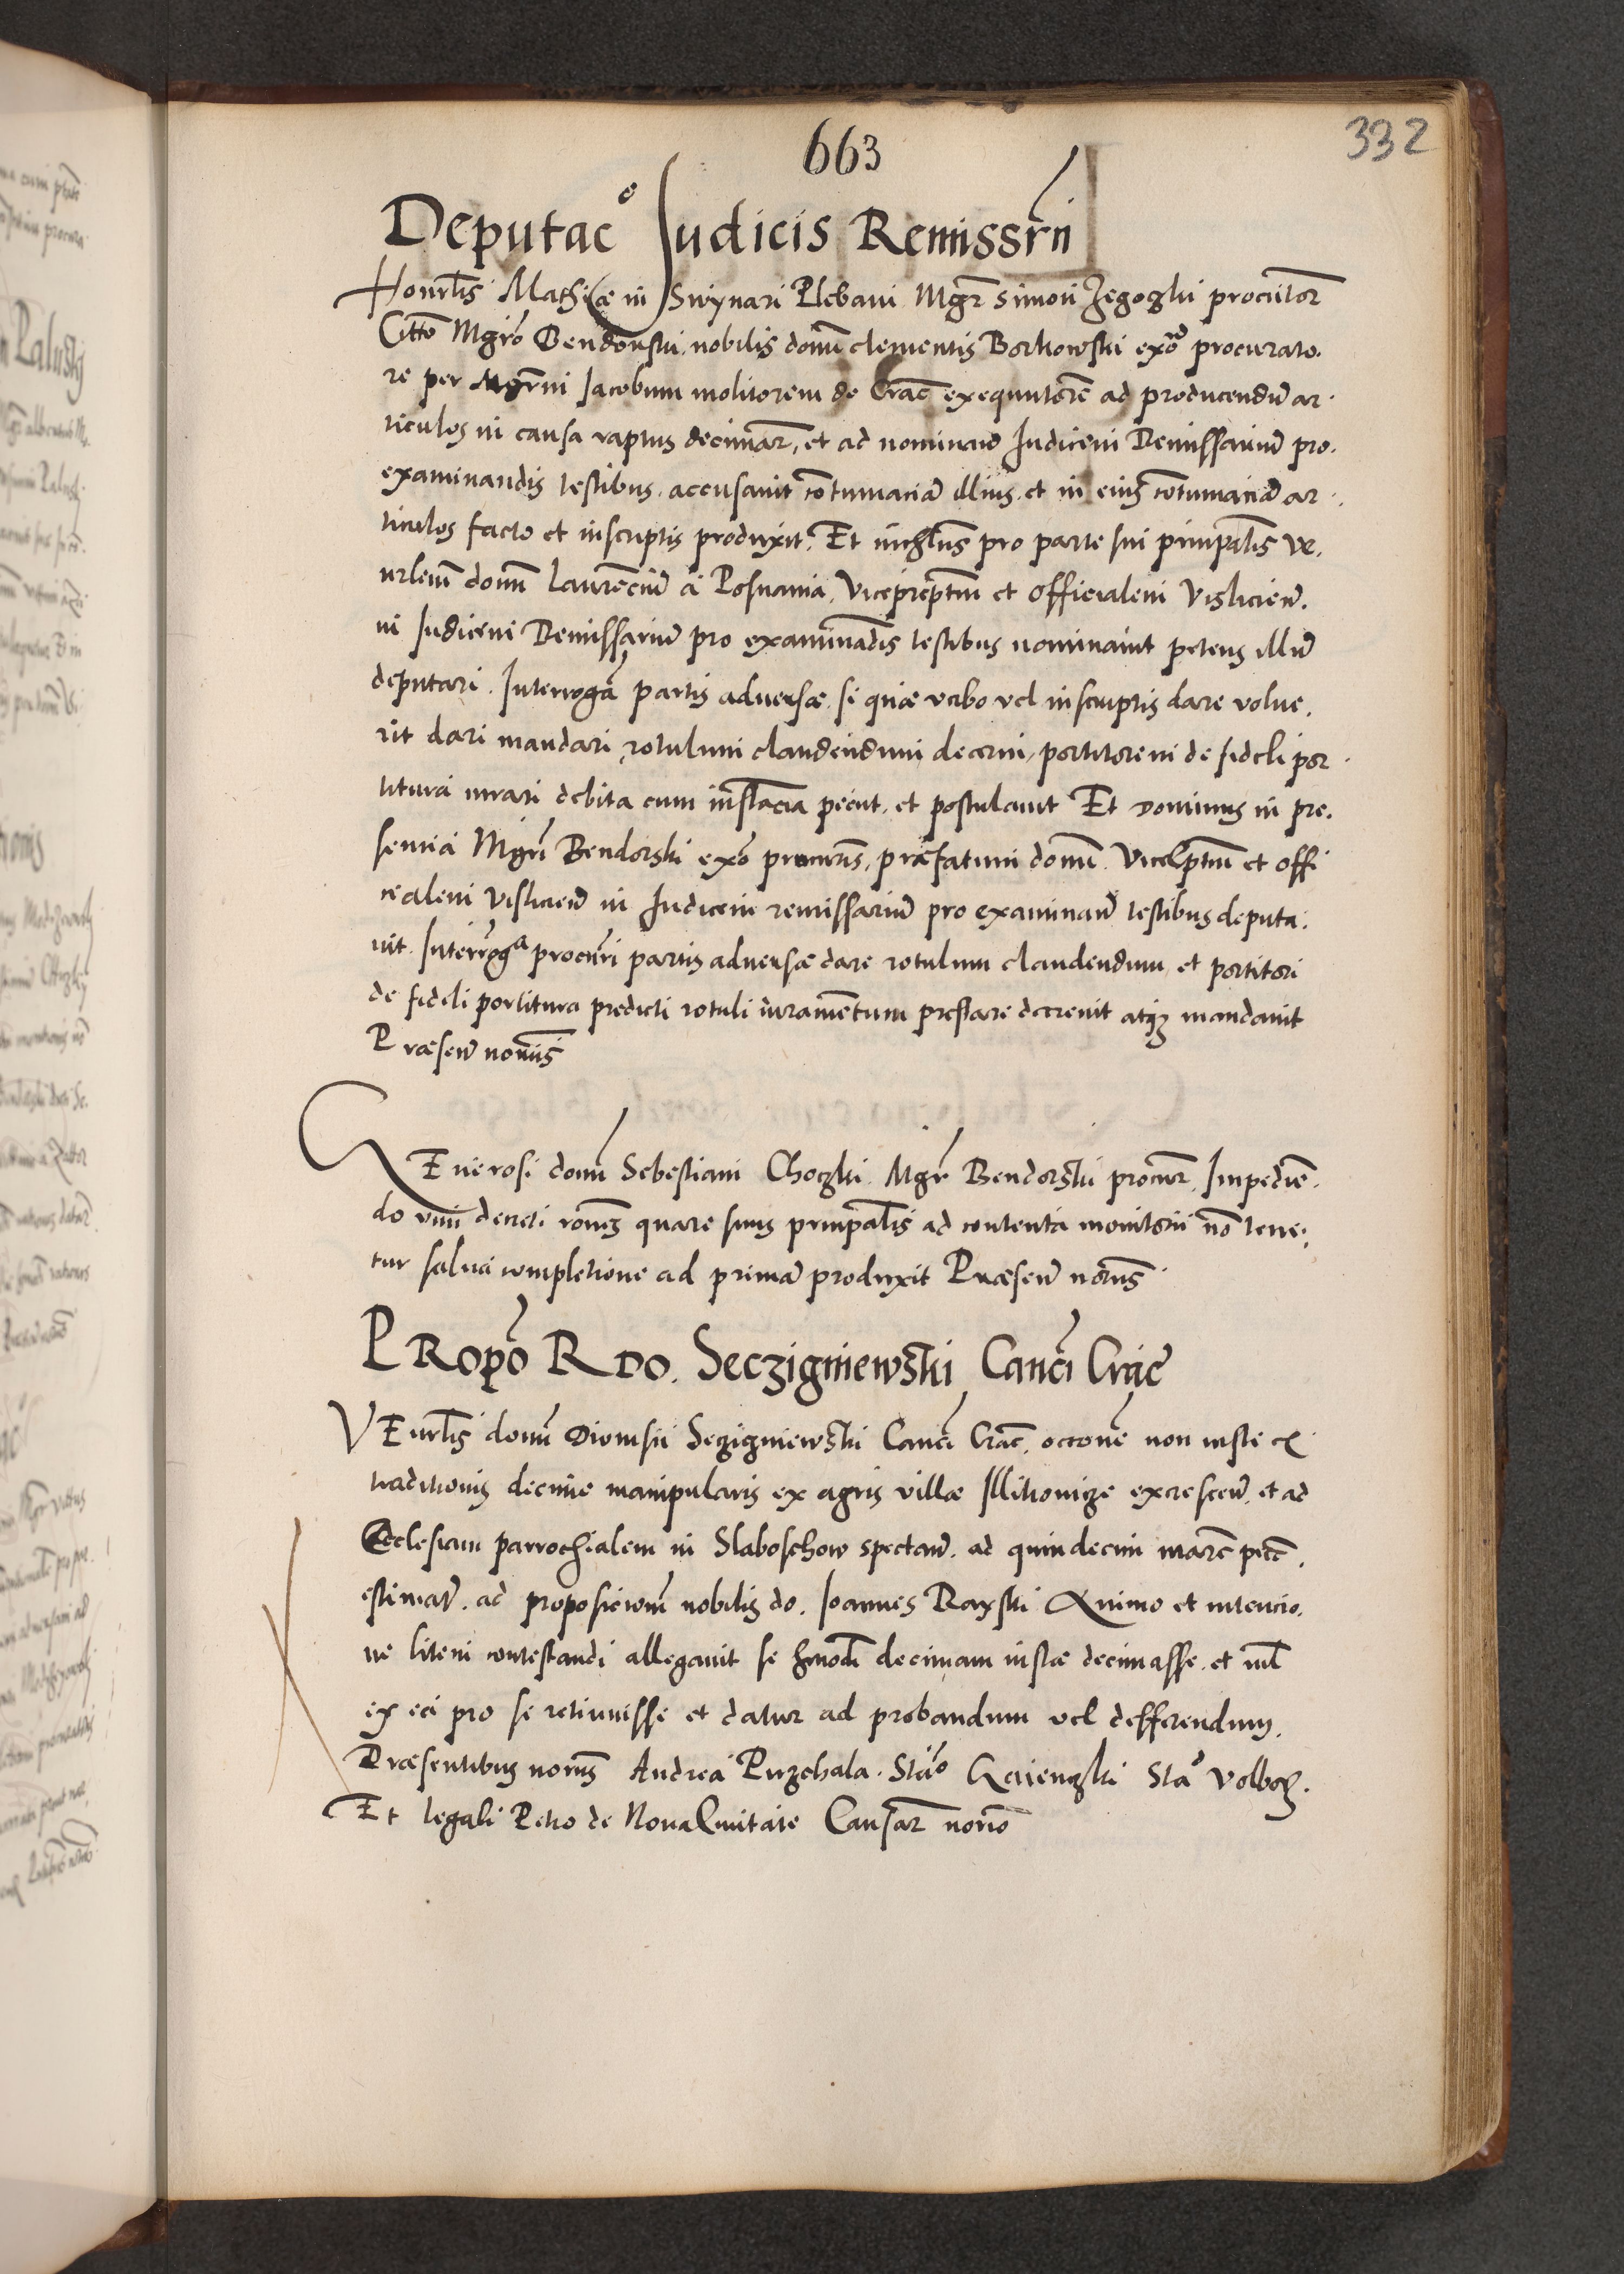 663
332
Deputac͠o Judicis Remissr̃ii
Honrl̃is Mathiæ in Swynari Plebani Mgr̃ Simon Zegoghi procũtor
Citto Mgr̃o Bendonski nobilis domi clementis Borkowski exõ procurato.
re per Mgr̃m Jacobum molitorem de Crac̃ exequutorẽ ad producendũ ar.
ticulos in causa raptus decimar̃, et ad nominand̃ Judicem Remissariũ pro.
examinandis testibus, accusavit cõtumaciã illius, et in eius cõtumaciã ar.
ticulos facto et inscriptis produxit. Et nichl̃us pro parte sui principal̃is ve.
nrlem̃ domũ Laurenciũ a Posnania, Viceprep̃tum et officialem Visliciens̃.
in Judicem Remissariũ pro examinãdis testibus nominavit petens illũ
deputari. Interrogã partis adversæ, si quæ verbo vel inscriptis dare volue.
rit dari mandari, rotulum claudendum decerni, portitorem de fideli por
titura iurari debita cum instãcia peciit, et postulavit Et Dominus in pre.
sentia Mgr̃i Bendorski exõ procur̃is, præfatum domũ. Vicep̃ptum et offi
cialem Visliciens̃ in Judicem remissariũ pro examinand̃ testibus deputa.
vit. Interrog̃a procur̃i partis adversæ dare rotulum claudendum, et portitori
de fideli portitura predicti rotuli iuramẽtum prestare decrevit atq̃ mandavit
Præsen̄ noriis̃
GEnerosi domĩ Sebestiani Choczki Mgr̃ Bendorski procur̃. Impediẽ.
do vim decreti rõnes quare suus principal̃is ad contenta monitorii nõ tene.
tur salva completione ad primã produxit Præsen̄ noriis̃
PRopõ R DO. Seczigniewski Canc̃i Crac̃
VEnrl̃is domĩ Dionisii Seczigniewski Canc̃i Crac̃, occonẽ non iuste ex
traditionis decime manipularis ex agris villæ Illikowicze excrescen̄, et ad
Ecclesiam parrochialem in Slaboschow spectan̄, ad quindecim marc̃ pecc̃,
estimat̃, ad proposicionẽ nobilis do. Joannes Raxski Animo et intencio.
ne litem contestandi allegavit se hmodĩ decimam iustæ decimasse, et nil̃
ex ea pro se retinuisse et datur ad probandum vel defferendum,
Præsentibus noriis̃ Andrea Przechala. Stão Kriengki Stã Volboz.
Et legali Petro de Nova Civitate Causar̃ norio